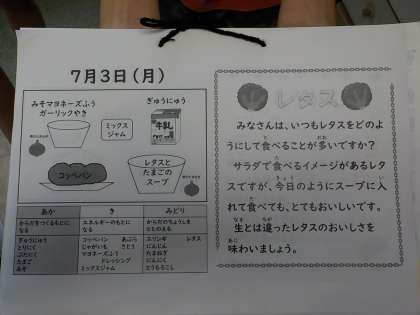 7月3日(月)
みそマヨネーズふう
ガーリックやき
ミックス
ジャム
ぎゅうにゅう
牛乳
コッペパン
レタスと
たまごの
スープ
あか き みどり
からだをつくるもとに
なる
エネルギーのもとに
なる
からだのちょうしを
ととのえる
ぎゅうにゅう
とりにく
ぶたにく
たまご
みそ
コッペパン あぶら
じゃがいも さとう
マヨネーズふう
ドレッシング
ミックスジャム
エリンギ レタス
にんじん
たまねぎ
にんにく
とうもろこし
レタス
みなさんは、いつもレタスをどのよ
うにして食べることが多いですか?
サラダで食べるイメージがあるレタ
スですが、今日のようにスープに入
れて食べても、とてもおいしいです。
生とは違ったレタスのおいしさを
味わいましょう。